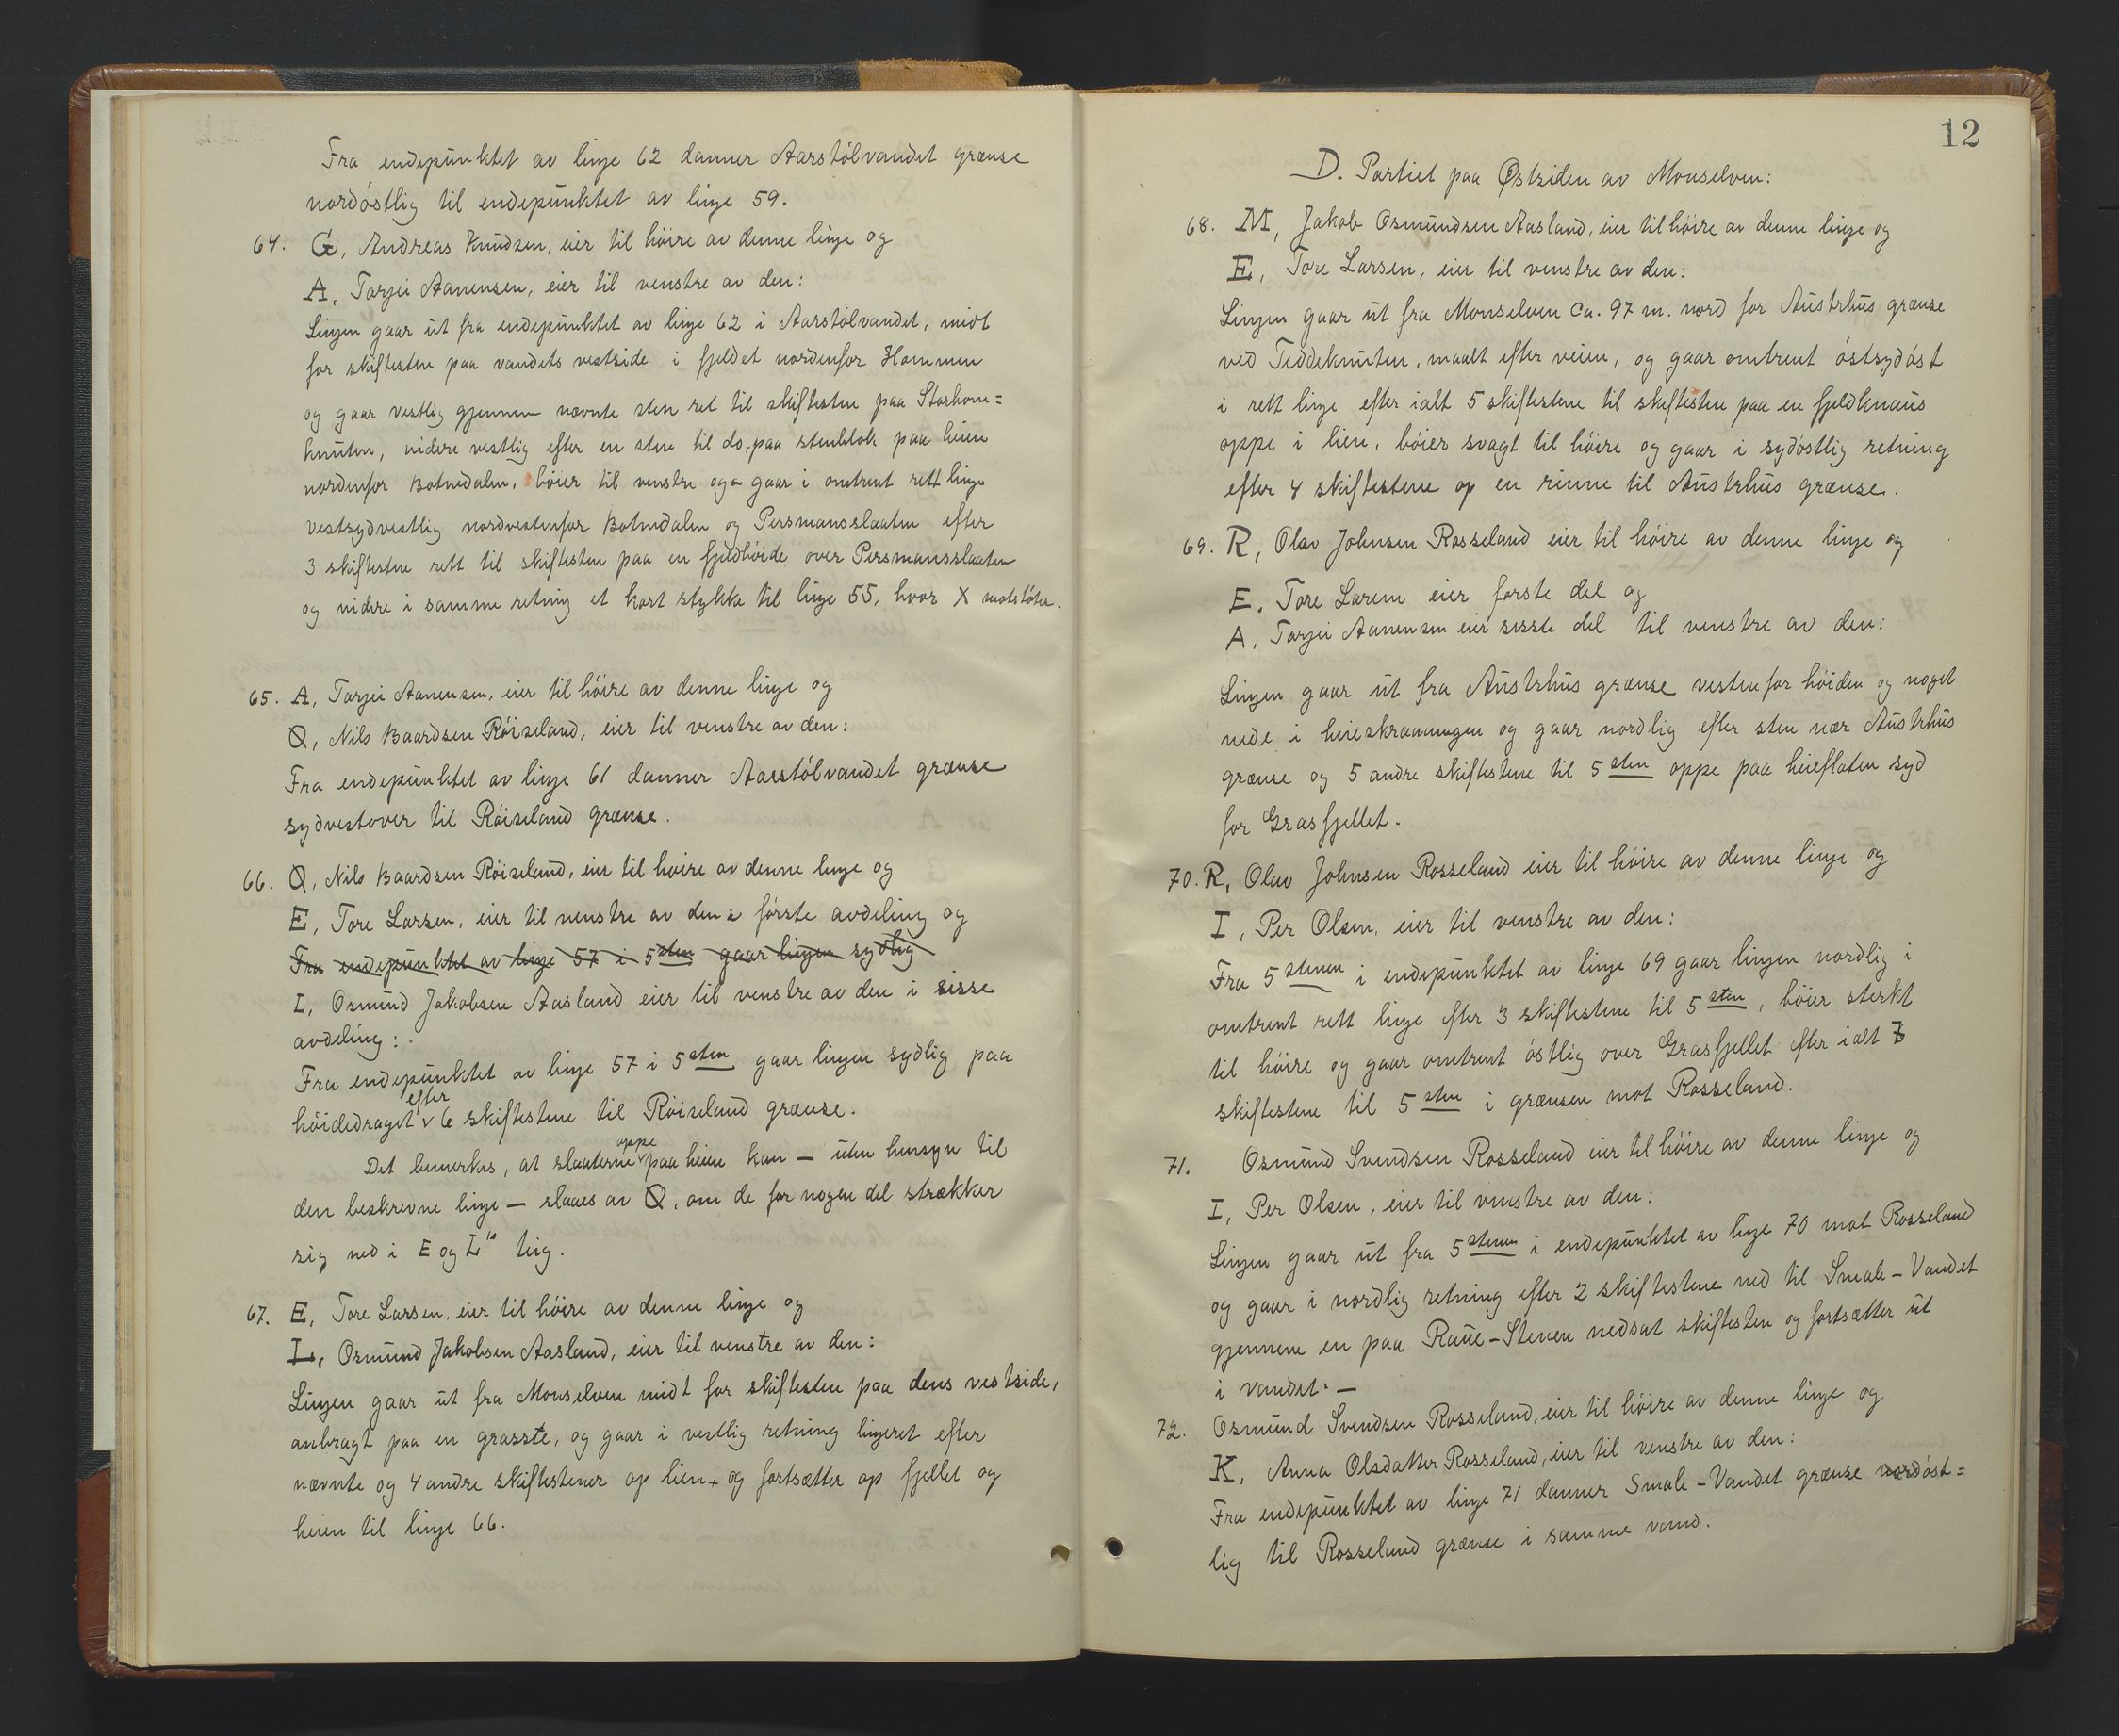 Fra endepunktet av linje 62 danner Aarstölvandet grænse
nordöstlig til endepunktet av linje 59.
64. G, Andreas Knudsen, eier til höire av denne linje og
A, Tarjei Aanensen, eier til venstre av den:
Linjen gaar ut fra endepunktet av linje 62 i Aarstölvandet, midt
for skiftesten paa vandets vestside i fjeldet nordenfor Hommen
og gaar vestlig gjennem nævnte sten ret til skiftesten paa Storhom=
knuten, videre vestlig efter en sten til do. paa stenblok paa heien
nordenfor Botnedalen, böier til venstre og gaar i omtrent rett linje
vestsydvestlig nordvestenfor Botndalen og Persmansslaaten efter
3 skiftestene rett til skiftesten paa en fjeldhöide over Persmansslaaten
og videre i samme retning et kort stykke til linje 55, hvor X motstöter.
65. A, Tarjei Aanensen, eier til höire av denne linje og
Q, Nils Baardsen Röiseland, eier til venstre av den:
Fra endepunktet av linje 61 danner Aarstölvandet grænse
sydvestover til Röiseland grænse.
66. Q, Nils Baardsen Röiseland, eier til hoire av denne linje og
E, Tore Larsen, eier til venstre av den i förste avdeling og
Fra endepunktet av linje 57 i 5sten gaar linjen sydlig
L, Osmund Jakobsen Aasland eier til venstre av den i sisse
avdeling:
Fra endepunktet av linje 57 i 5sten gaar linjen sydlig paa
höidedraget efter 6 skiftestene til Röiseland grænse.
Det bemerkes, at slaaterne oppe paa heien kan – uten hensyn til
den beskrevne linje – slaaes av Q, om de for nogen del strækker
sig ned i E og L's teig.
67. E, Tore Larsen, eier til höire av denne linje og
L, Osmund Jakobsen Aasland, eier til venstre av den:
Linjen gaar ut fra Monselven midt for skiftesten paa dens vestside,
anbragt paa en grasste, og gaar i vestlig retning linjeret efter
nævnte og 4 andre skiftestener op lien og fortsætter op fjellet og
heien til linje 66.
12
D. Partiet paa Østsiden av Monselven:
68. M, Jakob Osmundsen Aasland, eier til höire av denne linje og
E, Tore Larsen, eier til venstre av den:
Linjen gaar ut fra Monselven ca. 97 m. nord for Austrhus grænse
ved Teddeknuten, maalt efter veien, og gaar omtrent östsydöst
i rett linje efter ialt 5 skiftestene til skiftesten paa en fjeldknaus
oppe i lien, böier svagt til höire og gaar i sydöstlig retning
efter 4 skiftestene op en rinne til Austrhus grænse.
69. R, Olav Johnsen Rosseland eier til höire av denne linje og
E. Tore Larsen eier forste del og
A. Tarjei Aanensen eier sisste del til venstre av den:
Linjen gaar ut fra Austrhus grænse vestenfor höiden og noget
nede i heieskraaningen og gaar nordlig efter sten nær Austrhus
grænse og 5 andre skiftestene til 5sten oppe paa heieflaten syd
for Grasfjellet.
70. R, Olav Johnsen Rosseland eier til höire av denne linje og
I, Per Olsen, eier til venstre av den:
Fra 5stenen i endepunktet av linje 69 gaar linjen nordlig i
omtrent rett linje efter 3 skiftestene til 5sten, böier sterkt
til höire og gaar omtrent östlig over Grasfjellet efter ialt 7
skiftestene til 5sten i grænsen mot Rosseland.
71. Osmund Svendsen Rosseland eier til höire av denne linje og
I, Per Olsen, eier til venstre av den:
Linjen gaar ut fra 5stenen i endepunktet av linje 70 mot Rosseland
og gaar i nordlig retning efter 2 skiftestene ned til Smale-Vandet
gjennem en paa Raue-Stenen nedsat skiftesten og fortsætter ut
i vandet. –
72. Osmund Svendsen Rosseland, eier til höire av denne linje og
K, Anna Olsdatter Rosseland, eier til venstre av den:
Fra endepunktet av linje 71 danner Smale-Vandet grænse nordöst=
lig til Rosseland grænse i samme vand.